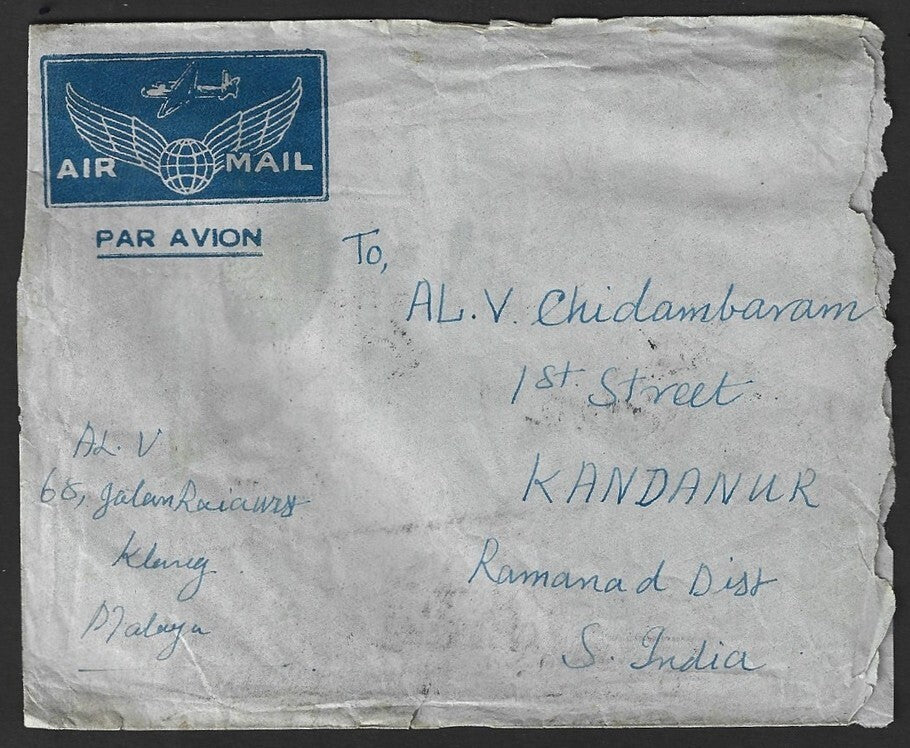 AIR MAIL
PAR AVION
To,
AL. V. Chidambaram
1st Street
KANDANUR
Ramanad Dist
S. India
AL. V
68, Jalan
Klang
Malaya